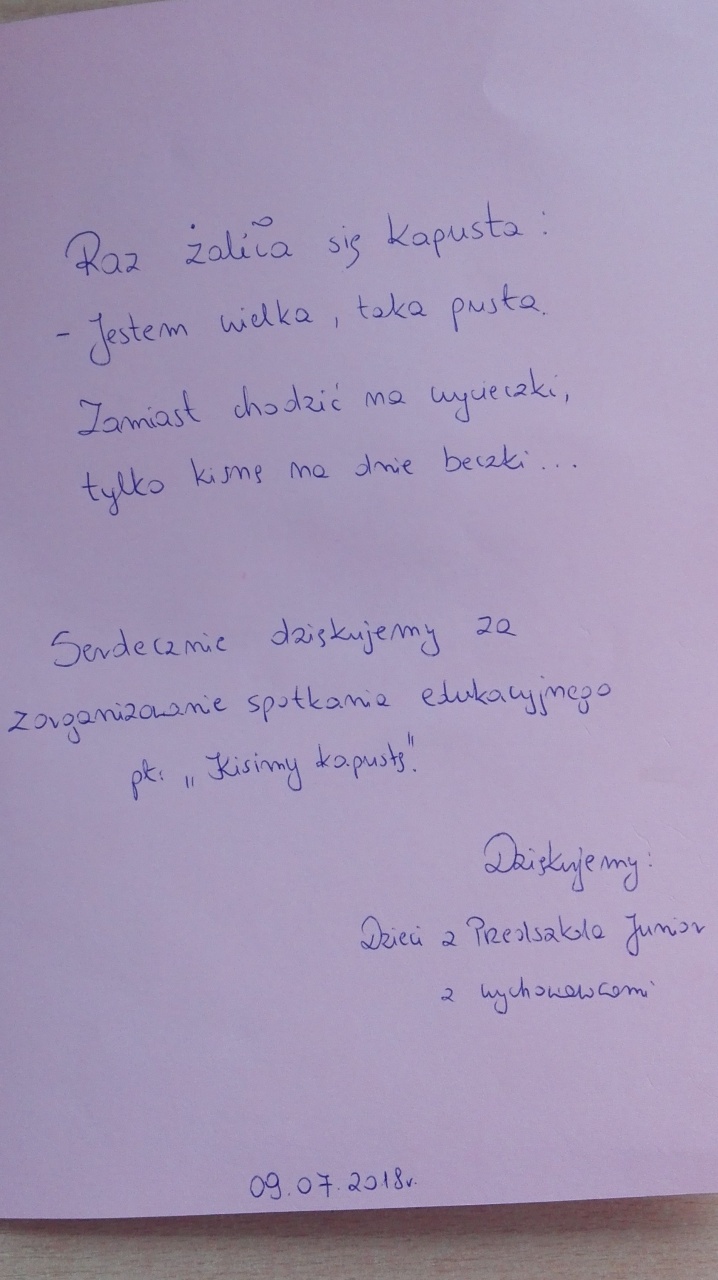 Raz żaliła się kapusta:
- Jestem wielka, taka pusta.
Zamiast chodzić na wycieczki,
tylko kisnę na dnie beczki...
Serdecznie dziękujemy za
zorganizowanie spotkania edukacyjnego
pt. „Kisimy kapustę".
Dziękujemy:
Dzieci z Przedszkola Junior
z wychowawcami
09.07.2018r.